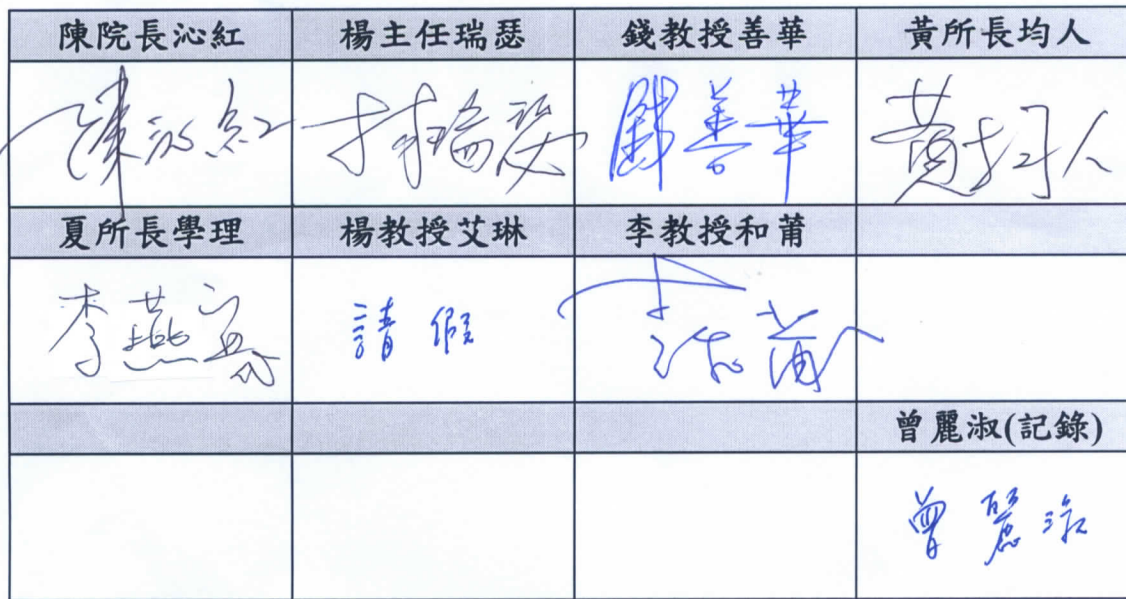 陳院長沁紅 楊主任瑞瑟 錢教授善華 黃所長均人
陳沁紅 楊瑞瑟 錢善華 黃均人
夏所長學理 楊教授艾琳 李教授和莆
李燕宜 請假 李和莆
曾麗淑(記錄)
曾麗淑